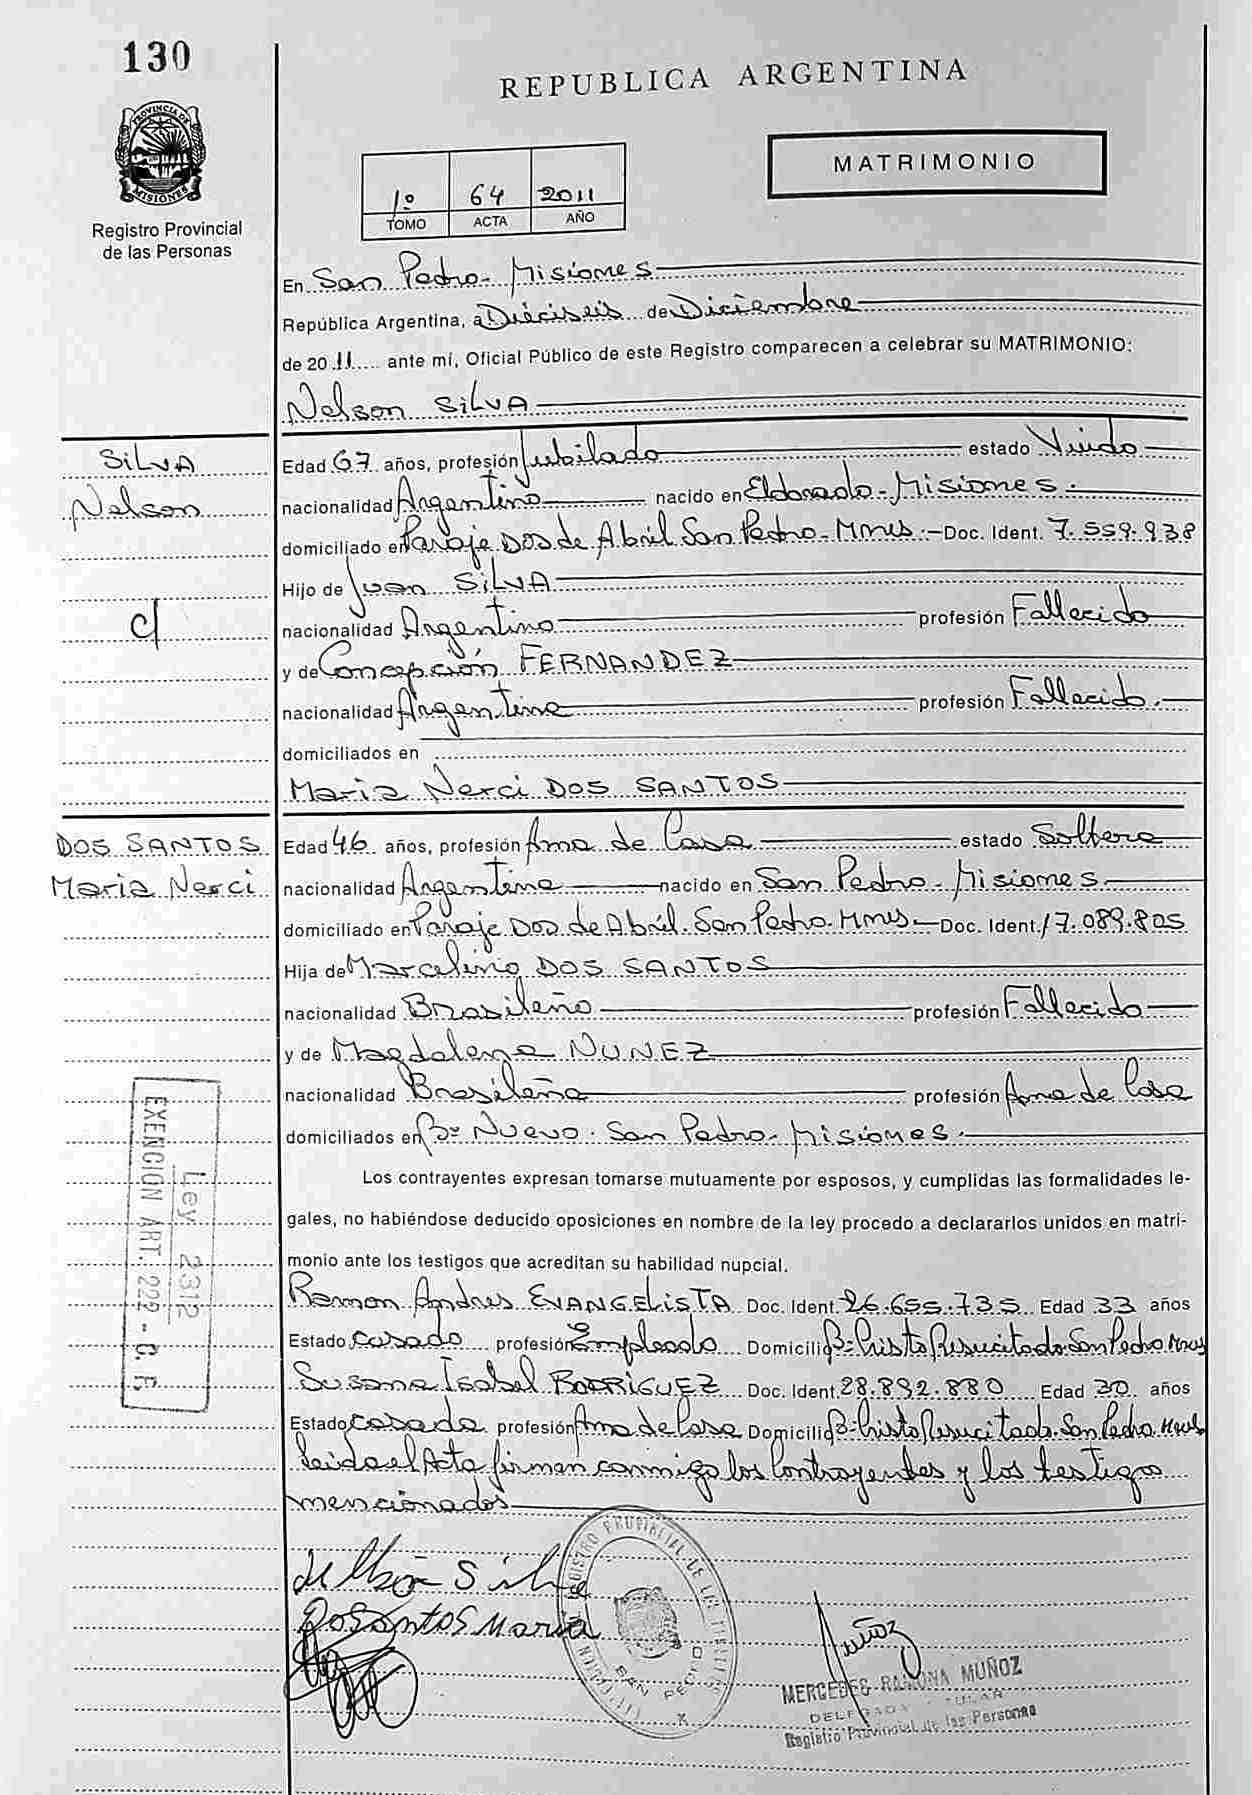 130
REPUBLICA ARGENTINA
PROVINCIA DE MISIONES
Registro Provincial
de las Personas
1º 64 2011
TOMO ACTA AÑO
MATRIMONIO
En San Pedro - Misiones
República Argentina, a Dieciseis de Diciembre
de 2011 ante mí, Oficial Público de este Registro comparecen a celebrar su MATRIMONIO:
Nelson SILVA
SILVA
Nelson
c/
Edad 67 años, profesión Jubilado estado Viudo
nacionalidad Argentino nacido en Eldorado - Misiones.
domiciliado en Paraje Dos de Abril San Pedro - Mnes.- Doc. Ident. 7.559.938
Hijo de Juan SILVA
nacionalidad Argentino profesión Fallecido
y de Concepción FERNANDEZ
nacionalidad Argentina profesión Fallecida.
domiciliados en
Maria Nerci DOS SANTOS
DOS SANTOS
Maria Nerci
Edad 46 años, profesión Ama de Casa estado Soltera
nacionalidad Argentina nacido en San Pedro - Misiones
domiciliado en Paraje Dos de Abril. San Pedro - Mnes - Doc. Ident. 17.089.805
Hija de Marcelino DOS SANTOS
nacionalidad Brasileño profesión Fallecido
y de Magdalena NUNEZ
nacionalidad Brasileña profesión Ama de Casa
domiciliados en Bº Nuevo. San Pedro - Misiones.
Ley 2312
EXENCION ART. 222 - C. F.
Los contrayentes expresan tomarse mutuamente por esposos, y cumplidas las formalidades le-
gales, no habiéndose deducido oposiciones en nombre de la ley procedo a declararlos unidos en matri-
monio ante los testigos que acreditan su habilidad nupcial.
Ramon Andres EVANGELISTA Doc. Ident. 26.655.735 Edad 33 años
Estado casado profesión Empleado Domicilio Bº Cristo Resucitado San Pedro Mnes
Susana Isabel RODRIGUEZ Doc. Ident. 28.892.880 Edad 30 años
Estado casada profesión Ama de Casa Domicilio Bº Cristo Resucitado. San Pedro. Mnes
Leida el Acta firman conmigo los Contrayentes y los testigos
mencionados
Silva
DoSantos Maria
REGISTRO PROVINCIAL DE LAS PERSONAS
SAN PEDRO
Muñoz
MERCEDES RAMONA MUÑOZ
DELEGADA TITULAR
Registro Provincial de las Personas